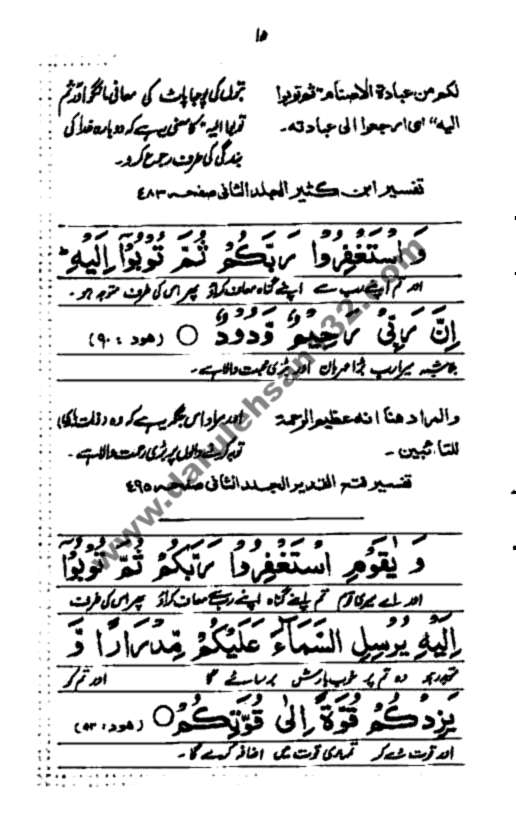 ۱۵
لكم من عبادة الاصنام "ثم توبوا
اليه" اى ارجعوا الى عبادته۔
بتوں کی پوجا پاٹ کی معافی مانگو اور ثم
توبوا الیہ" کا معنی یہ ہے کہ دوبارہ خدا کی
بندگی کی طرف رجوع کرو۔
تفسیر ابن کثیر المجلد الثانی صفحہ ۴۸۳
وَاسْتَغْفِرُوْا رَبَّكُمْ ثُمَّ تُوْبُوْٓا اِلَيْهِ ؕ
اور تم اپنے رب سے اپنے گناہ معاف کراؤ پھر اس کی طرف متوجہ ہو۔
اِنَّ رَبِّيْ رَحِيْمٌ وَّدُوْدٌ ○ (هود : ۹۰)
بلاشبہ میرا رب بڑا مہربان اور بڑی محبت والا ہے۔
والمراد هنا انه عظيم الرحمة
للتائبين۔
اور مراد اس جگہ یہ ہے کہ وہ ذات بڑی
توبہ کرنے والوں پر بڑی رحمت والا ہے۔
تفسیر فتح القدیر المجلد الثانی صفحہ ۴۹۵
وَ يٰقَوْمِ اسْتَغْفِرُوْا رَبَّكُمْ ثُمَّ تُوْبُوْٓا
اور اے میری قوم تم اپنے گناہ اپنے رب سے معاف کراؤ پھر اس کی طرف
اِلَيْهِ يُرْسِلِ السَّمَآءَ عَلَيْكُمْ مِّدْرَارًا وَّ
متوجہ ہو وہ تم پر خوب بارش برسائے گا اور تم کو
يَزِدْكُمْ قُوَّةً اِلٰى قُوَّتِكُمْ ○ (هود : ۵۲)
اور قوت دے کر تمہاری قوت میں اضافہ کرے گا۔